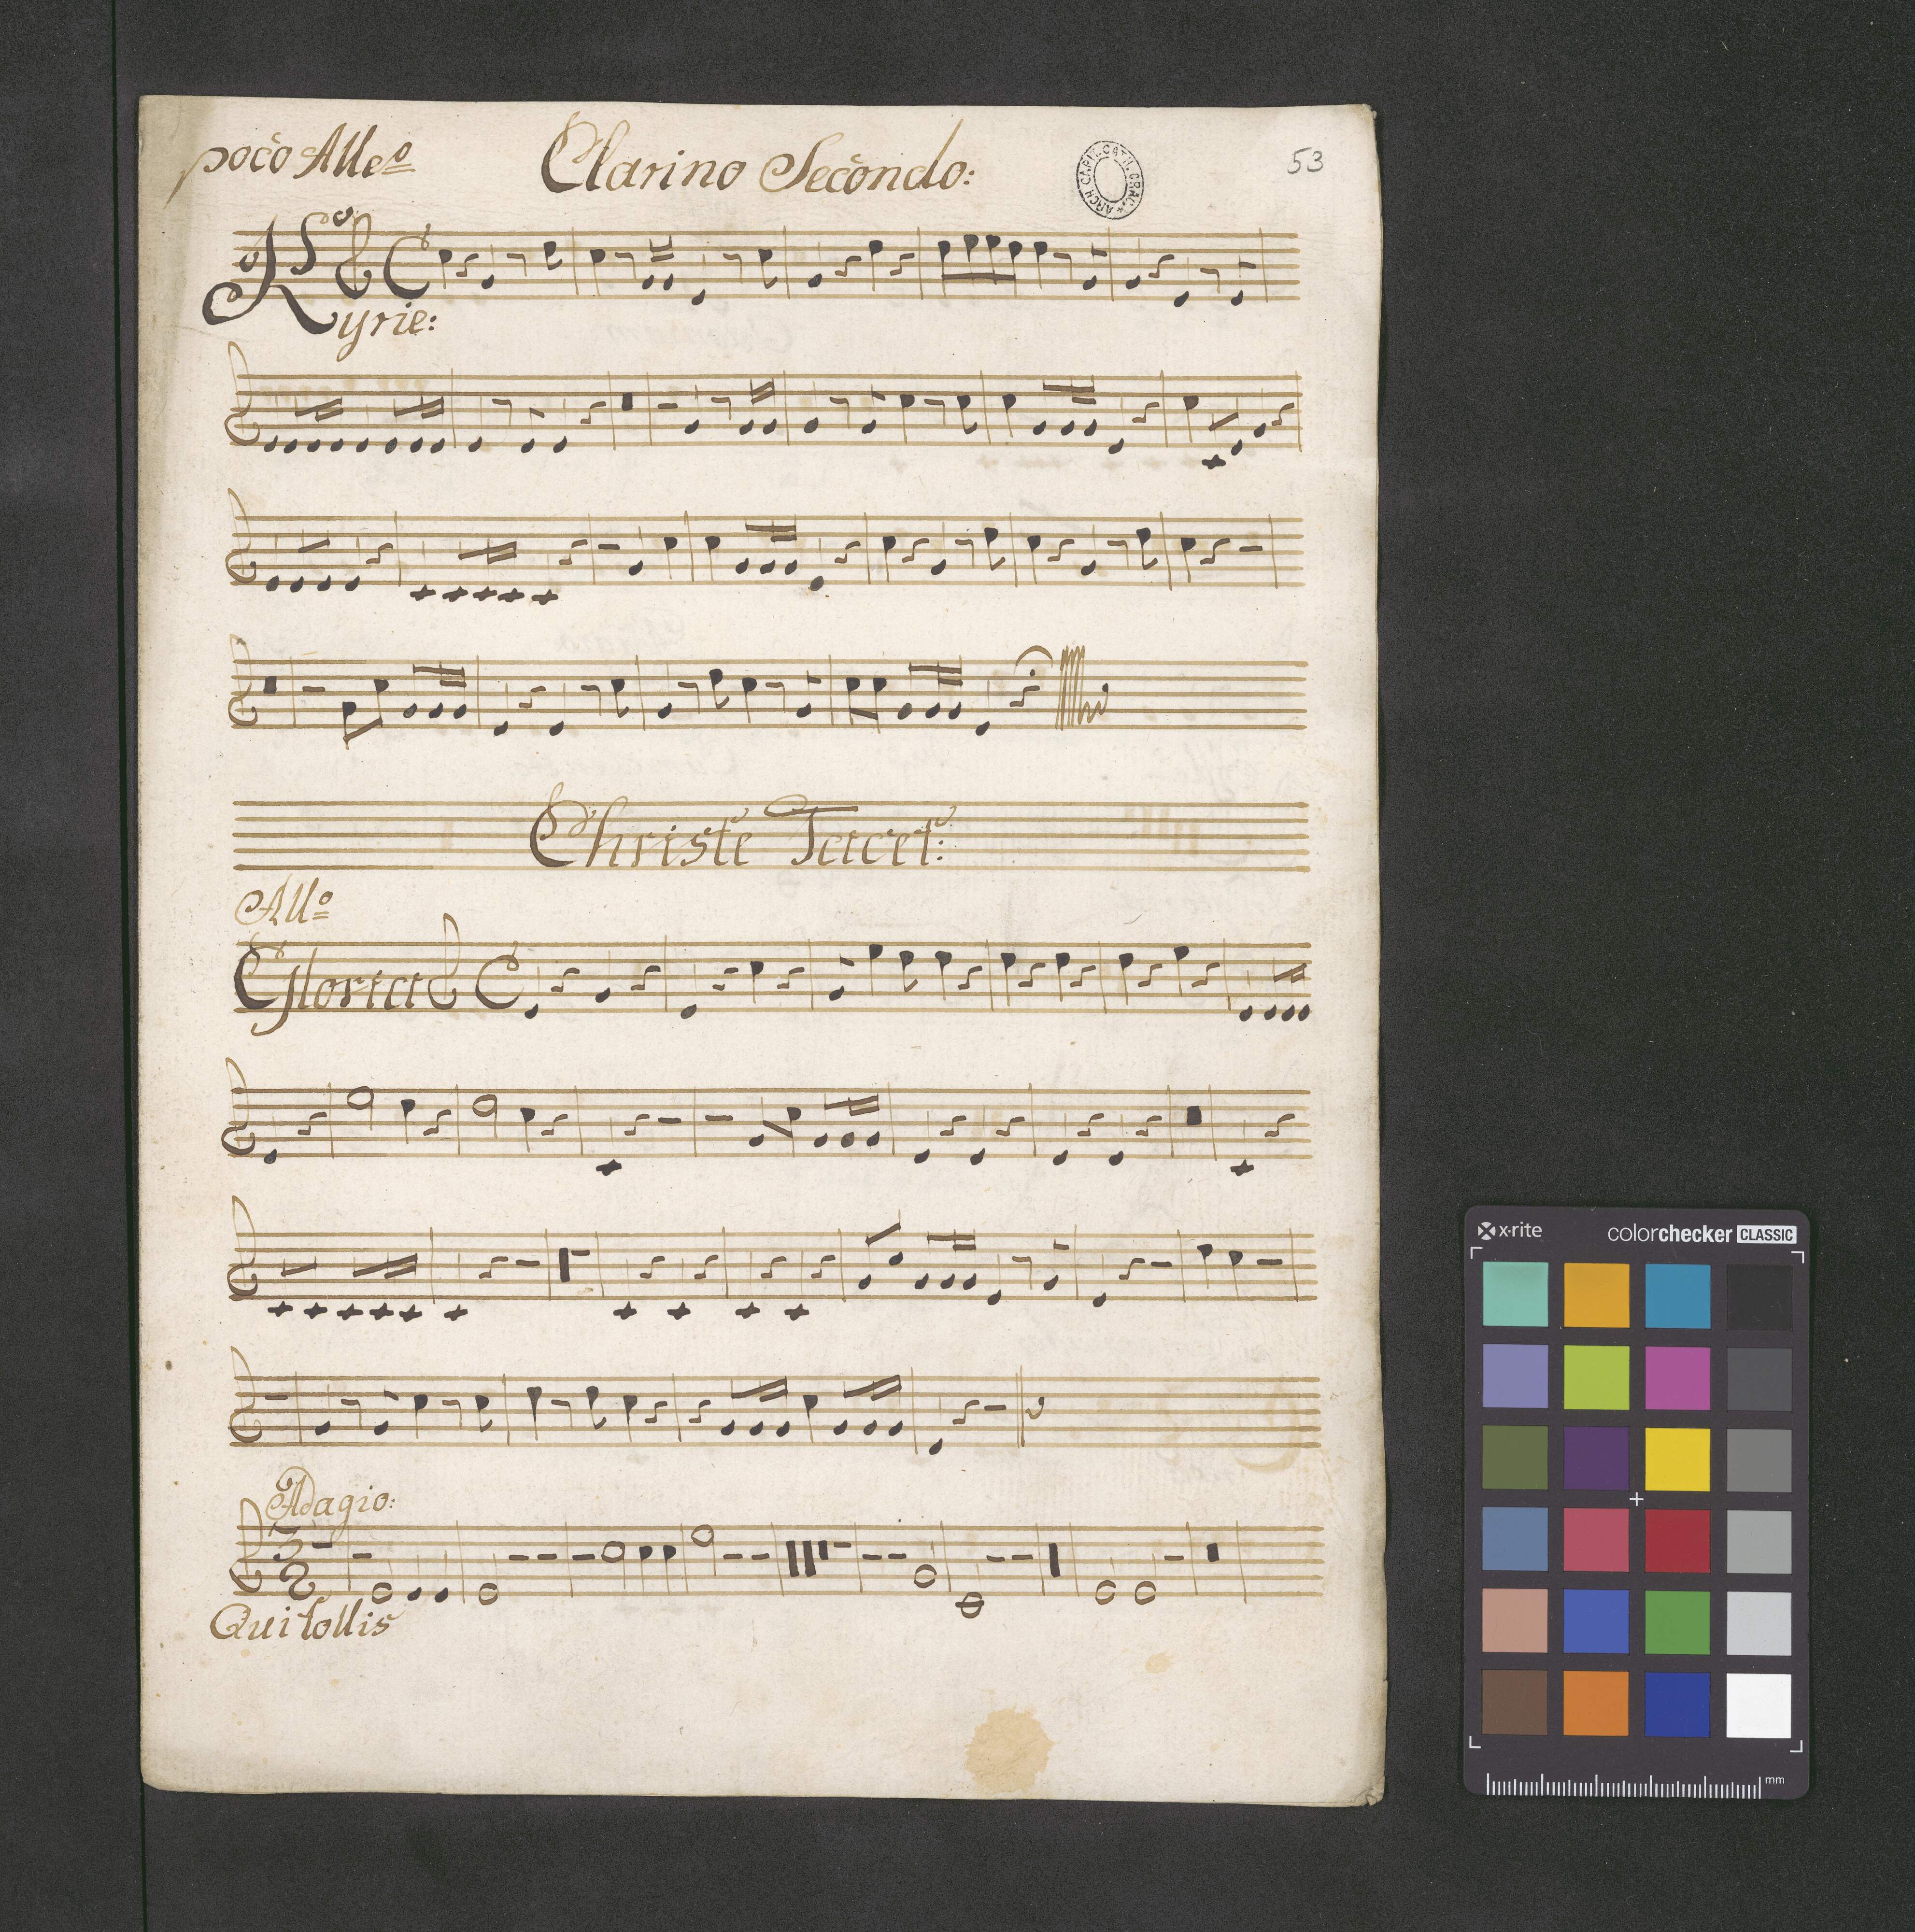 poco Alleº Clarino Secondo: 53
ARCH. CAPIT. CATH. CRAC. *
Kyrie:
Christe Tacet:
Allº
Gloria
Adagio:
3
2
Qui tollis
x-rite colorchecker CLASSIC
mm